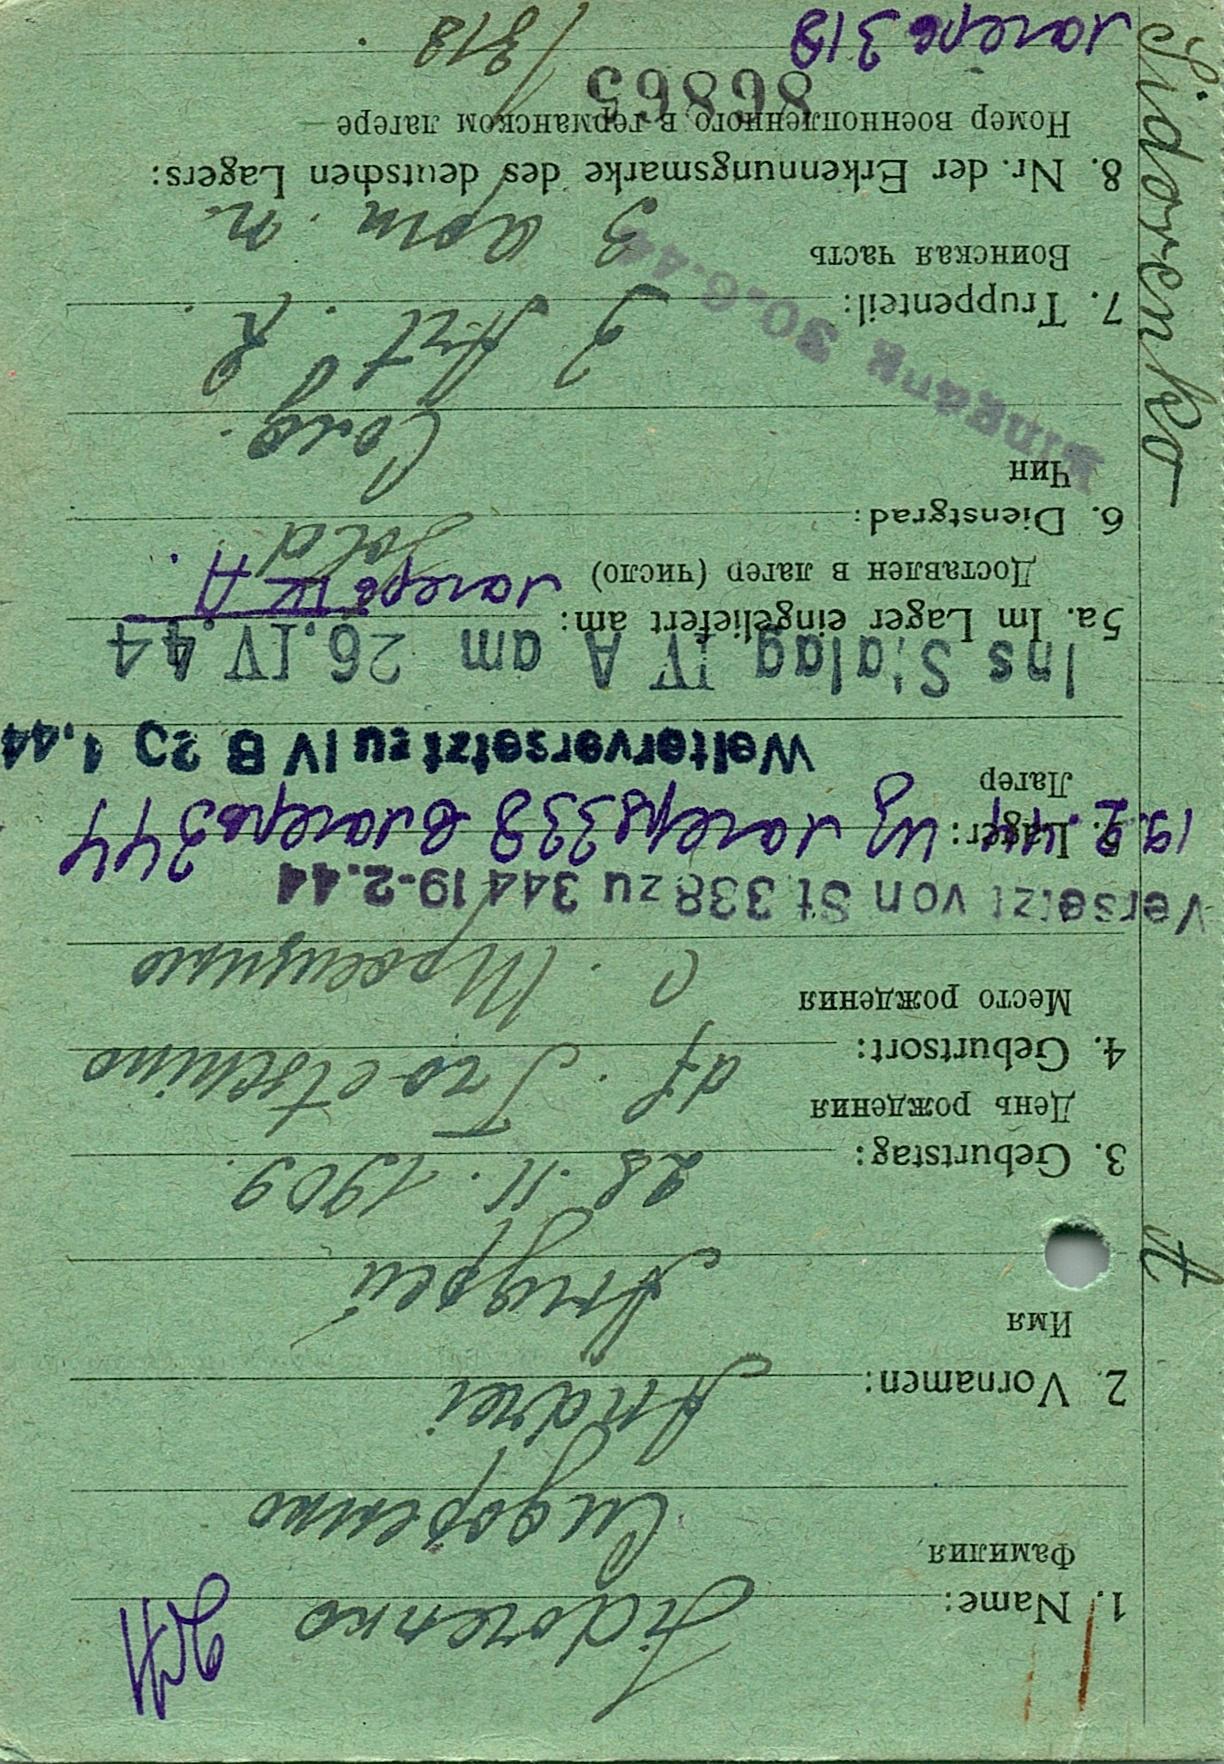 Sidorenko A
1. Name: Sidorenko
Фамилия Сидоренко
2. Vornamen: Andrei
Имя Андрей
3. Geburtstag: 28.11.1909.
День рождения
4. Geburtsort: df. Troetschino
Место рождения с. Троещино
Versetzt von St 338 zu 344 19-2.44
5. Lager:
19.2.44 из лагеря 338 в лагерь 344
Лагерь
Weiterversetzt zu IV B 23 4.44
Ins Stalag IV A am 26.IV.44
5a. Im Lager eingeliefert am:
Доставлен в лагер (число) лагерь IV A.
6. Dienstgrad: Sold
Чин Солд.
Eingang 30.6.44
7. Truppenteil: 3 Art. R.
Воинская часть 3 арт. п.
8. Nr. der Erkennungsmarke des deutschen Lagers:
Номер военнопленного в германском лагере —
86865
лагерь 318 /318